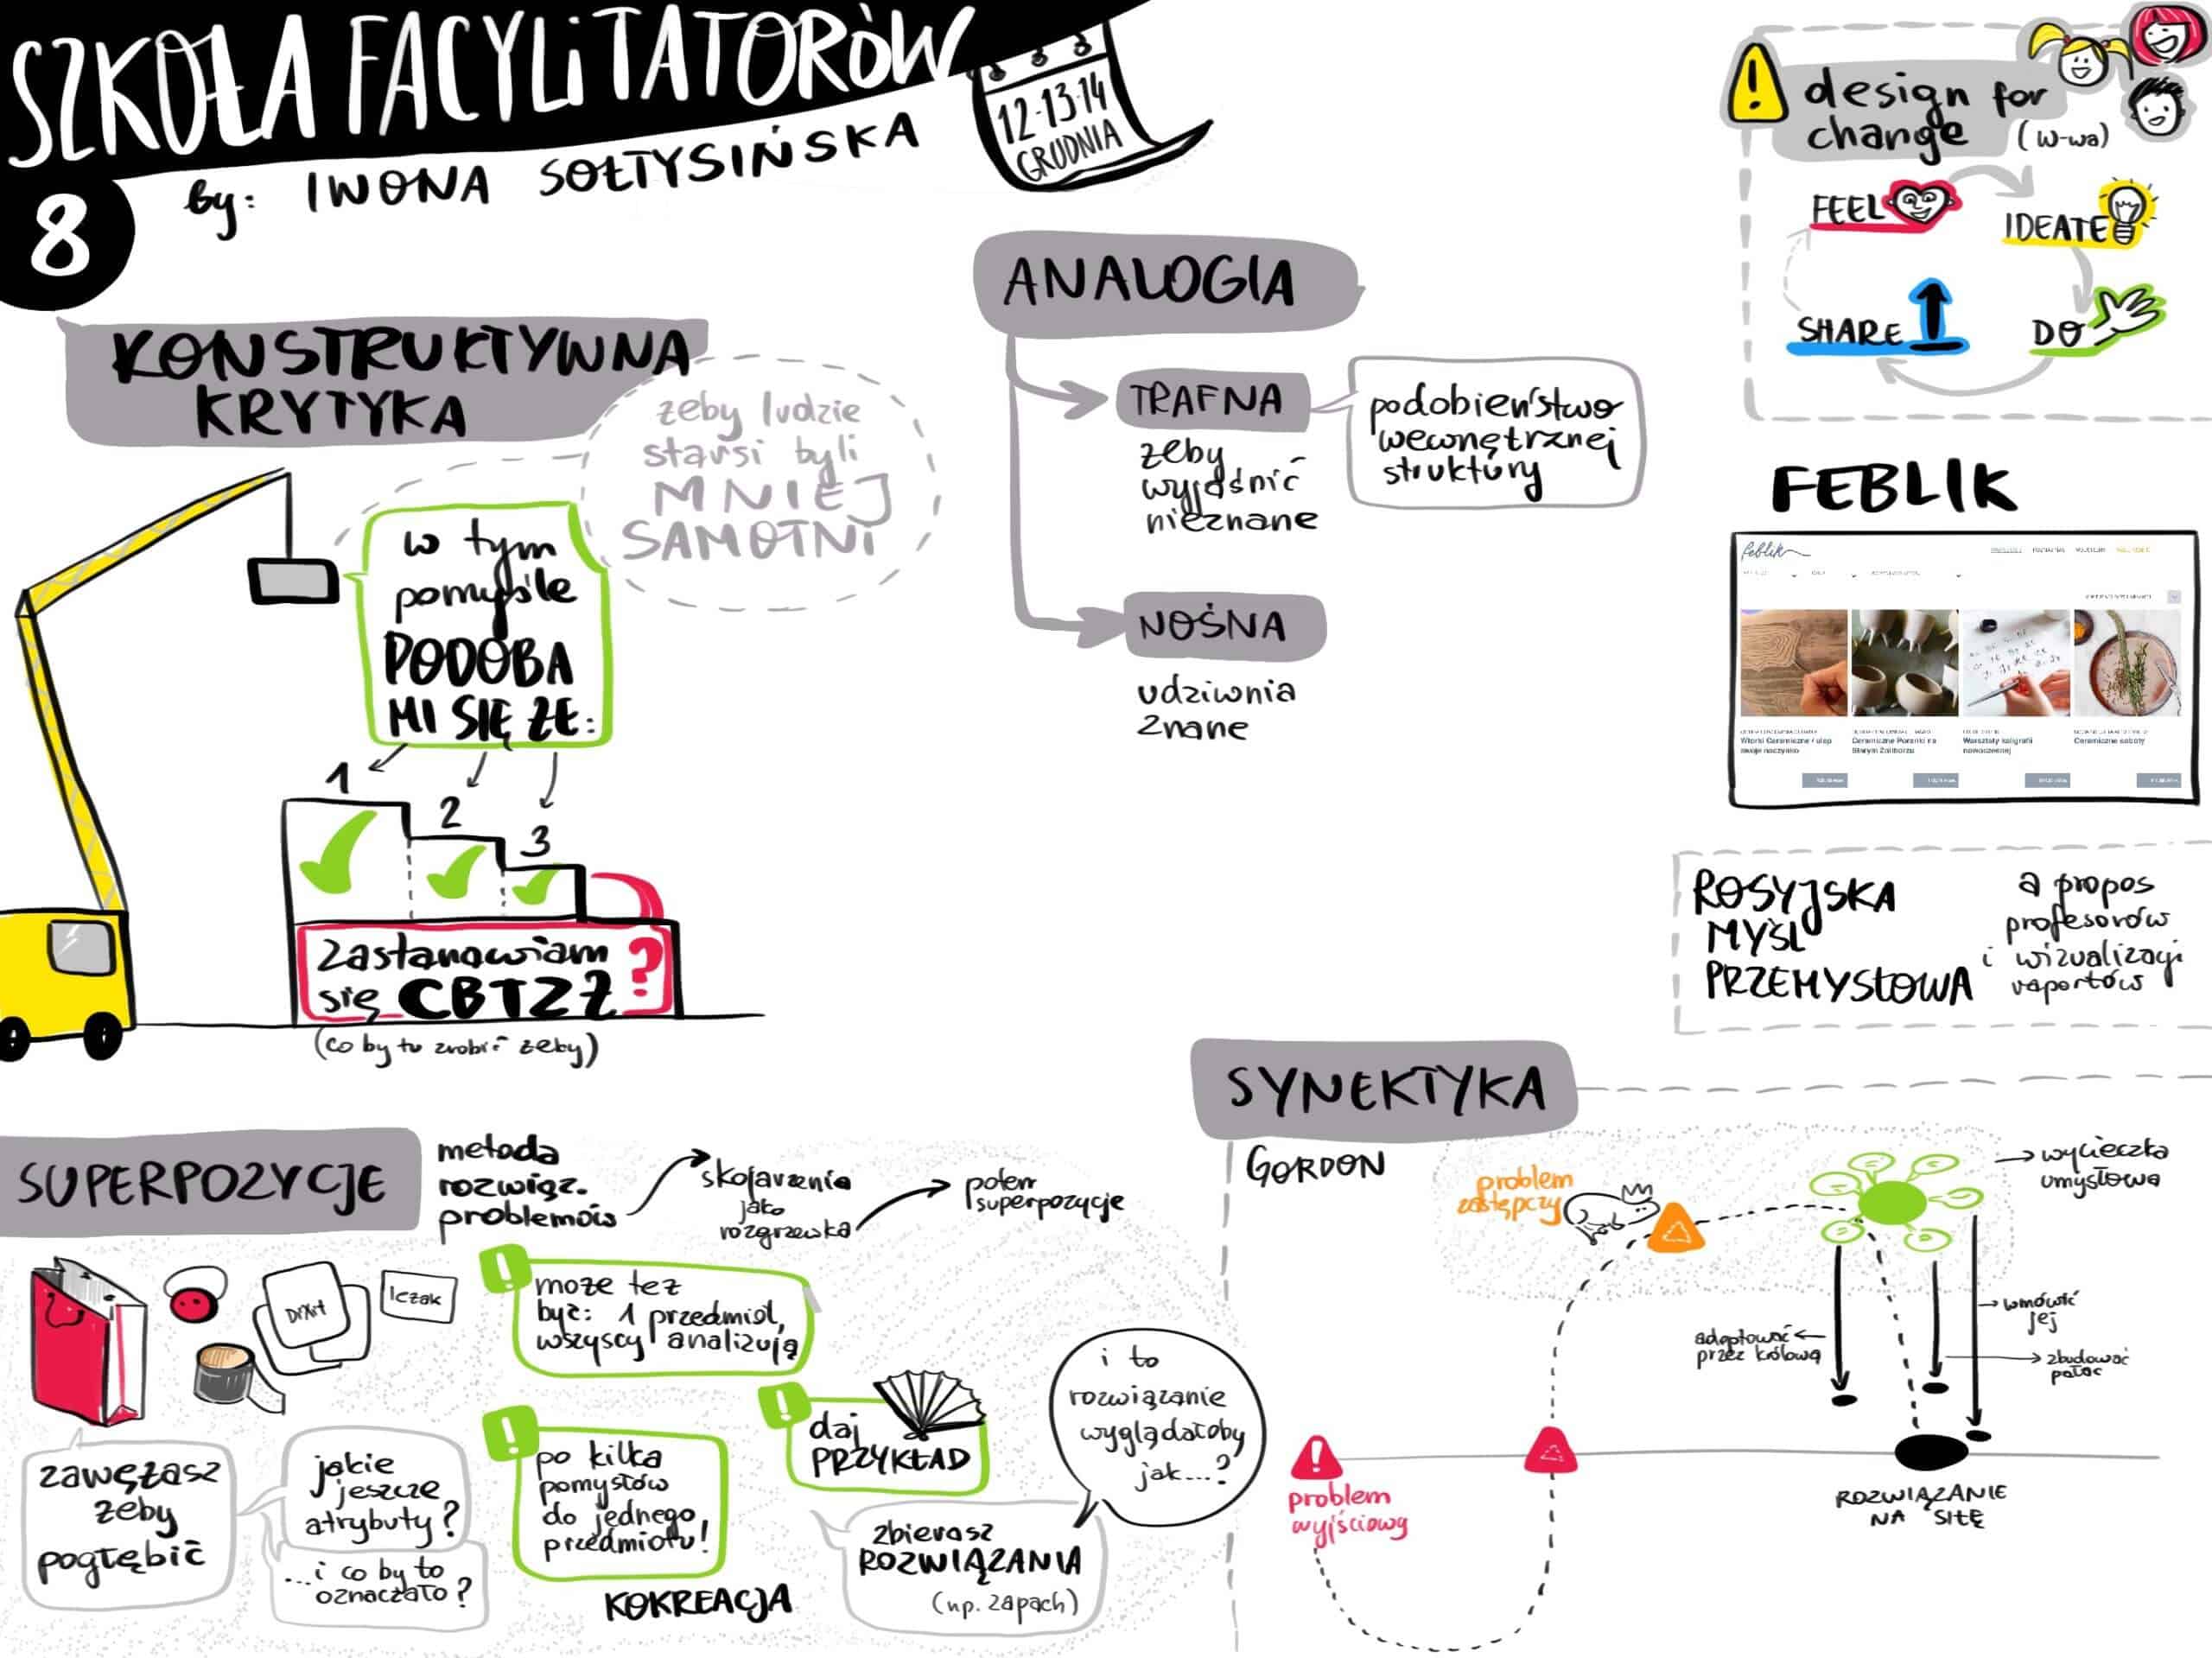 SZKOŁA FACYLITATORÓW
8
by: IWONA SOŁTYSIŃSKA
12-13-14
GRUDNIA
design for
change (w-wa)
FEEL
IDEATE
DO
SHARE
KONSTRUKTYWNA
KRYTYKA
żeby ludzie
starsi byli
MNIEJ
SAMOTNI
w tym
pomyśle
PODOBA
MI SIĘ ŻE:
1
2
3
zastanawiam
się CBTZŻ ?
(co by tu zrobić żeby)
ANALOGIA
TRAFNA
żeby
wyjaśnić
nieznane
podobieństwo
wewnętrznej
struktury
NOŚNA
udziwnia
znane
FEBLIK
feblik
Ceramiczne Poranki na
Starym Żoliborzu
Warsztaty kaligrafii
nowoczesnej
Ceramiczne soboty
ROSYJSKA
MYŚL
PRZEMYSŁOWA
a propos
profesorów
i wizualizacji
raportów
SUPERPOZYCJE
metoda
rozwiąz.
problemów
skojarzenia
jako
rozgrzewka
potem
superpozycje
DiXit
leżak
! może też
być: 1 przedmiot,
wszyscy analizują
zawężasz
żeby
pogłębić
jakie
jeszcze
atrybuty?
...i co by to
oznaczało?
! po kilka
pomysłów
do jednego
przedmiotu!
KOKREACJA
! daj
PRZYKŁAD
zbierasz
ROZWIĄZANIA
(np. zapach)
i to
rozwiązanie
wyglądałoby
jak...?
SYNEKTYKA
GORDON
problem
zastępczy
wycieczka
umysłowa
adoptować
przez królową
wmówić
jej
zbudować
pałac
!
problem
wyjściowy
ROZWIĄZANIE
NA SIŁĘ